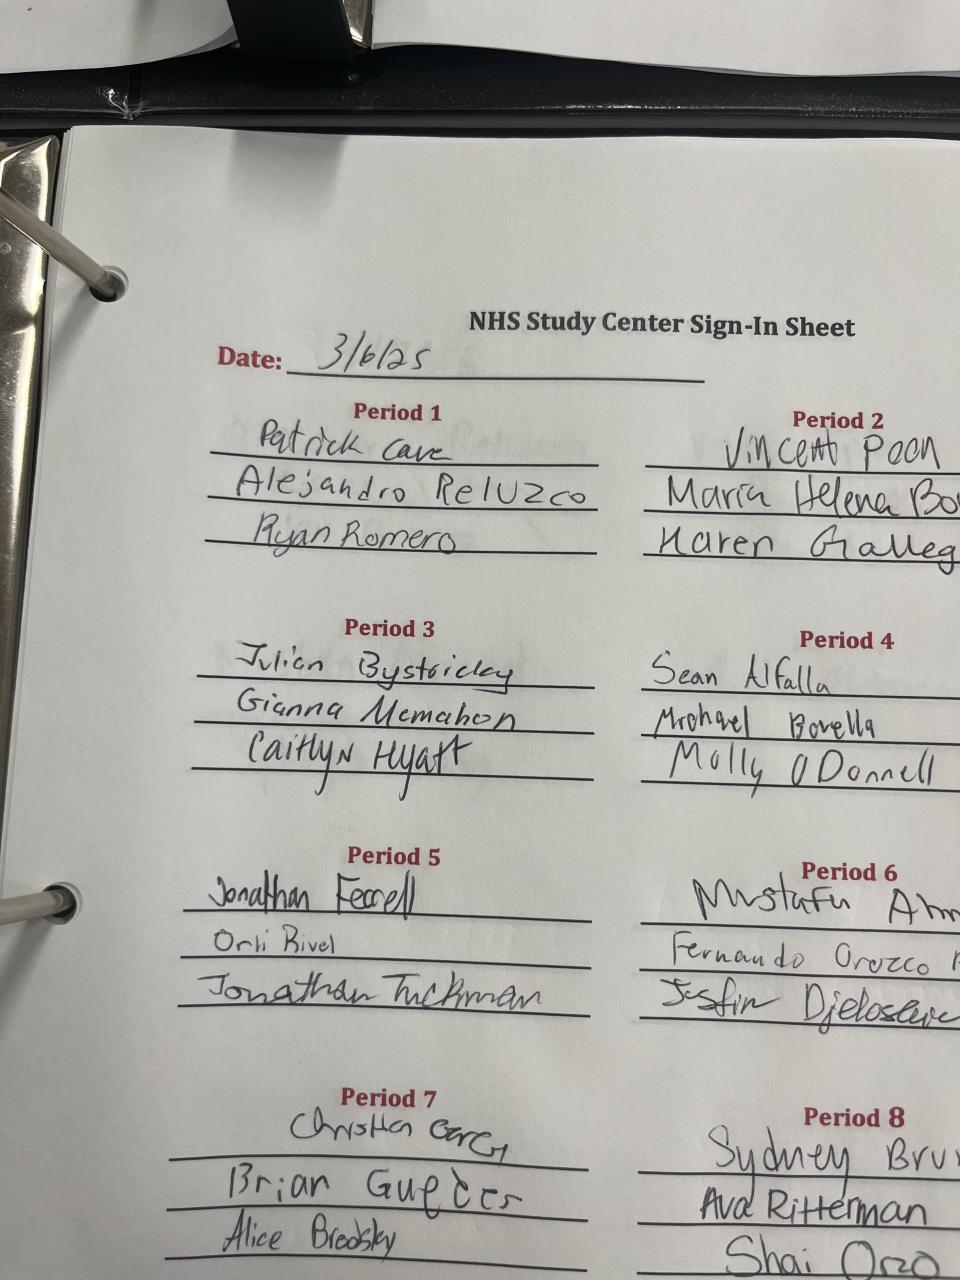 NHS Study Center Sign-In Sheet
Date: 3/6/25
Period 1
Patrick Cave
Alejandro Reluzco
Ryan Romero
Period 2
Vincent Poon
Maria Helena Bo
Karen Galleg
Period 3
Julian Bystricky
Gianna Mcmahon
Caitlyn Hyatt
Period 4
Sean Alfalla
Michael Bovella
Molly O Donnell
Period 5
Jonathan Ferrell
Orli Rivel
Jonathan Tuckman
Period 6
Mustafa Ahm
Fernando Orozco
Justin
Period 7
Christian
Brian
Alice Brodsky
Period 8
Sydney Bru
Ava Ritterman
Shai Oro